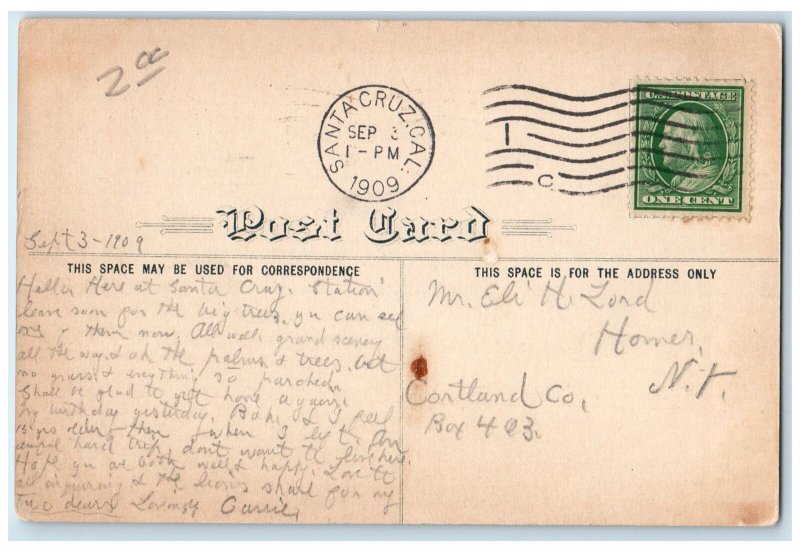 2.00
SANTA CRUZ, CAL.
SEP 3
1-PM
1909
1 C
U.S. POSTAGE
ONE CENT
Post Card
Sept 3-1909
THIS SPACE MAY BE USED FOR CORRESPONDENCE
THIS SPACE IS FOR THE ADDRESS ONLY
Hello, Here at Santa Cruz. Station
leave soon for the big trees. you can see
them now, All well, grand scenery
all the way & oh the palms & trees, but
no grass & everything so parched.
Shall be glad to get home again.
my birthday yesterday. & I feel
15 yrs older then when I left
awful hard trip, don't want to live here.
Hope you are both well & happy. Love to
all inquiring & the shall for my
Two dears Lovingly Carrie,
Mr. Eli H Lord
Homer,
N.Y.
Cortland Co,
Box 403.